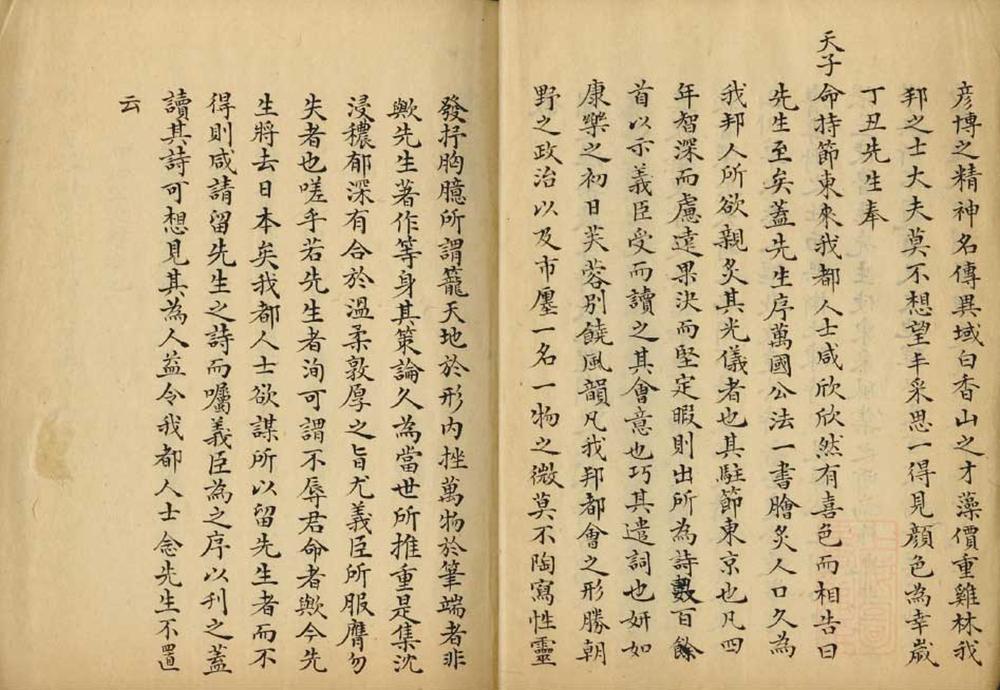 彦博之精神名傳異域白香山之才藻價重雞林我
邦之士大夫莫不想望丰采思一得見顔色為幸歲
丁丑先生奉
天子命持節東來我都人士咸欣欣然有喜色而相告曰
先生至矣蓋先生序萬國公法一書膾炙人口久為
我邦人所欲親炙其光儀者也其駐節東京也凡四
年智深而慮遠果決而堅定暇則出所為詩數百餘
首以示義臣受而讀之其會意也巧其遣詞也妍如
康樂之初日芙蓉别饒風韻凡我邦都會之形勝朝
野之政治以及市廛一名一物之微莫不陶寫性靈
發抒胸臆所謂籠天地於形内挫萬物於筆端者非
歟先生著作等身其策論久為當世所推重是集沈
浸穠郁深有合於溫柔敦厚之旨尤義臣所服膺勿
失者也嗟乎若先生者洵可謂不辱君命者歟今先
生將去日本矣我都人士欲謀所以留先生者而不
得則咸請留先生之詩而囑義臣為之序以刊之蓋
讀其詩可想見其為人益令我都人士念先生不置
云